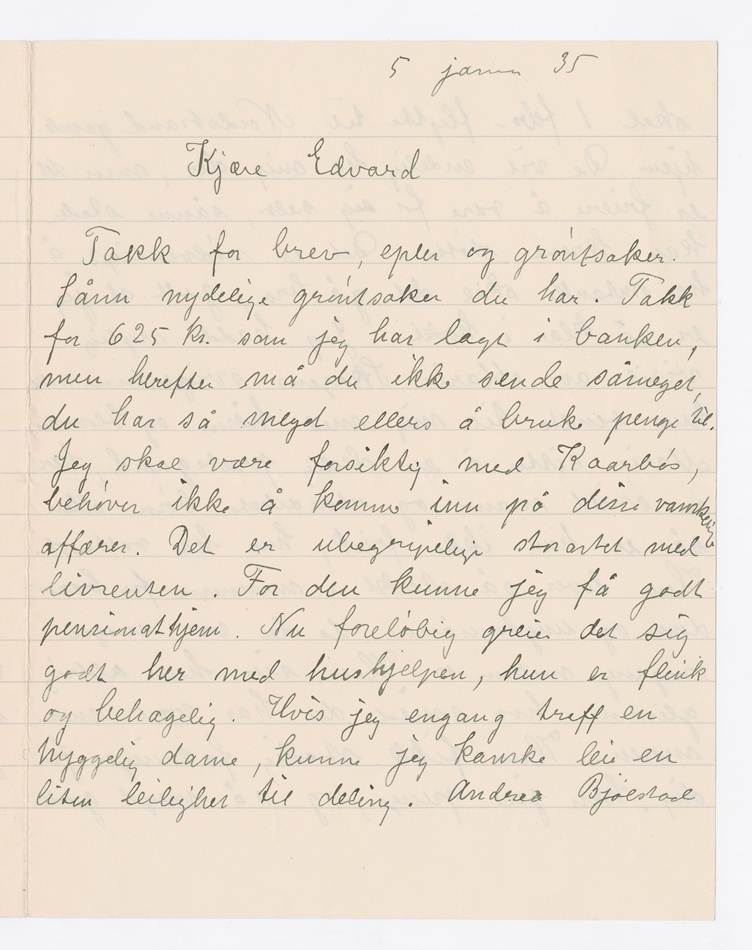 5 januar 35
Kjære Edvard
Takk for brev, epler og grøntsaker.
Sånn nydelige grøntsaker du har. Takk
for 625 kr. som jeg har lagt i banken,
men herefter må du ikke sende såmeget,
du har så meget ellers å bruke penge til.
Jeg skal være forsiktig med Kaarbøs,
behøver ikke å komme inn på disse vanskelige
affærer. Det er ubegripelige storartet med
livrenten. For den kunne jeg få godt
pensionathjem. Nu foreløbig greier det sig
godt her med hushjelpen, hun er flink
og behagelig. Hvis jeg engang treff en
hyggelig dame, kunne jeg kanske leie en
liten leilighet til deling. Andrea Bjølstad